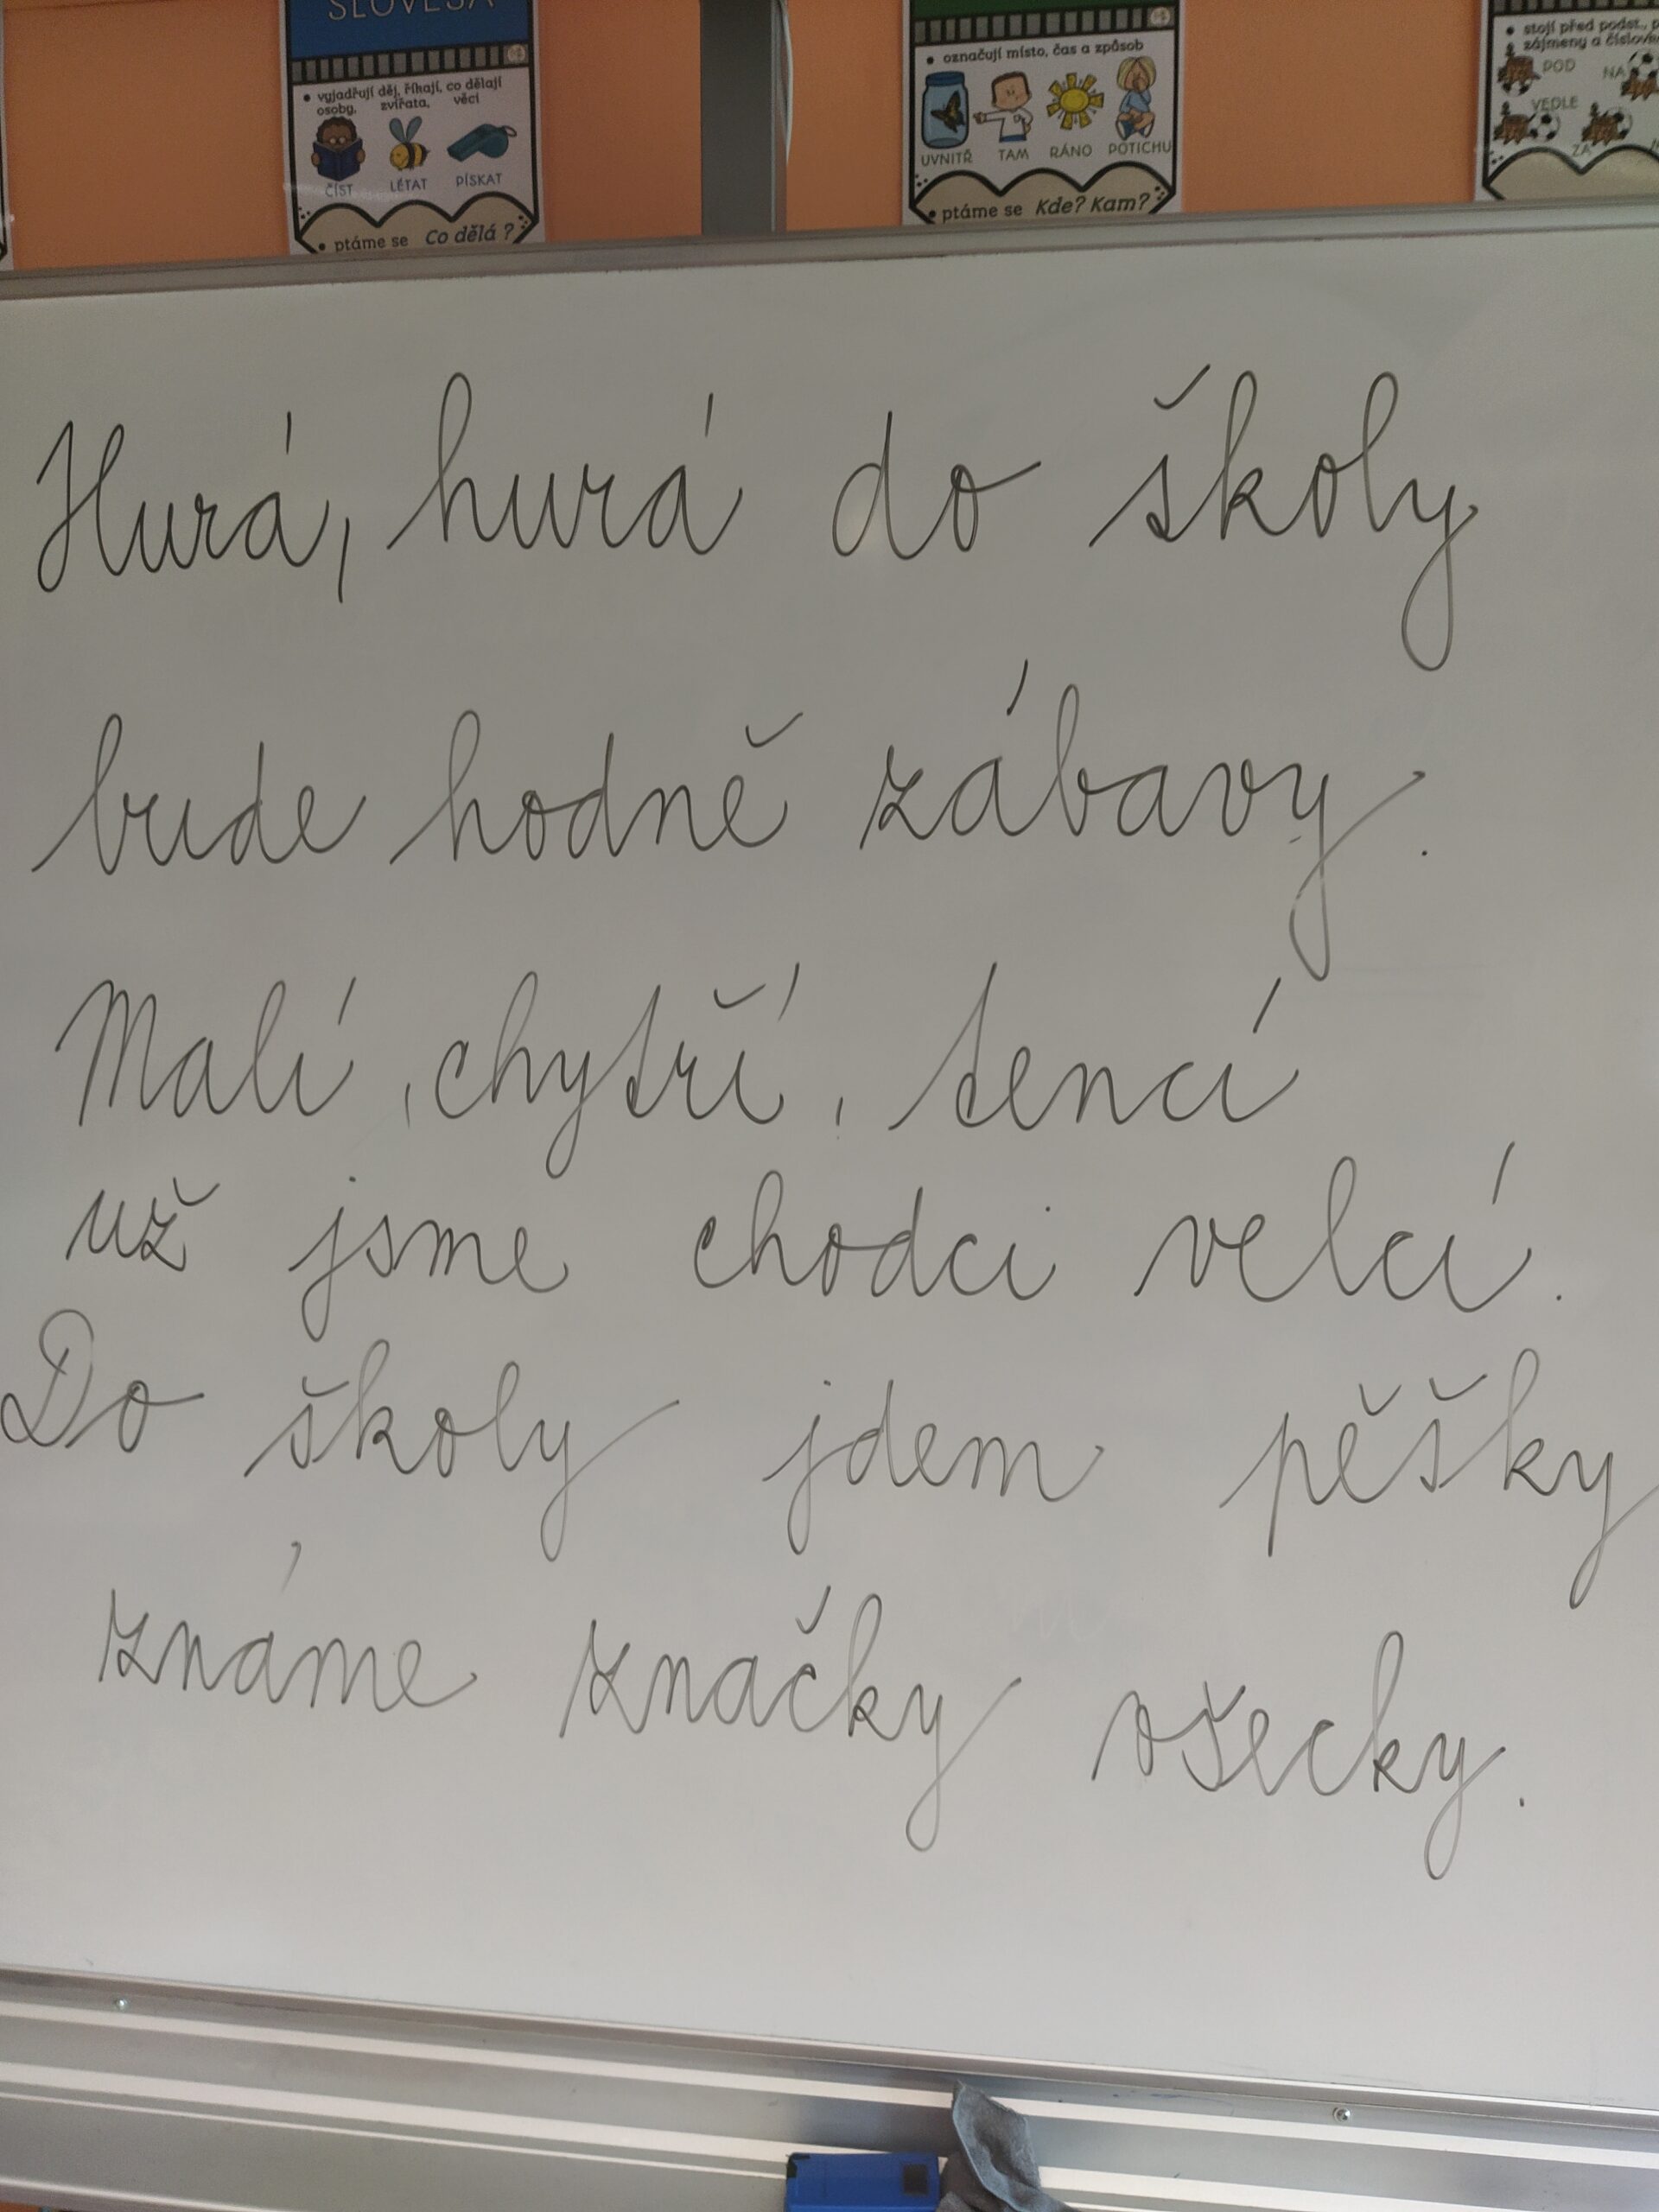 SLOVESA
• vyjadřují děj, říkají, co dělají
osoby, zvířata, věci
ČÍST LÉTAT PÍSKAT
• ptáme se Co dělá?
• označují místo, čas a způsob
UVNITŘ TAM RÁNO POTICHU
• ptáme se Kde? Kam?
• stojí před podst.,
zájmeny a
POD NA
VEDLE
ZA
Hurá, hurá do školy
bude hodně zábavy.
Malí, chytří, tencí
už jsme chodci velcí.
Do školy jdem pěšky
známe značky všecky.